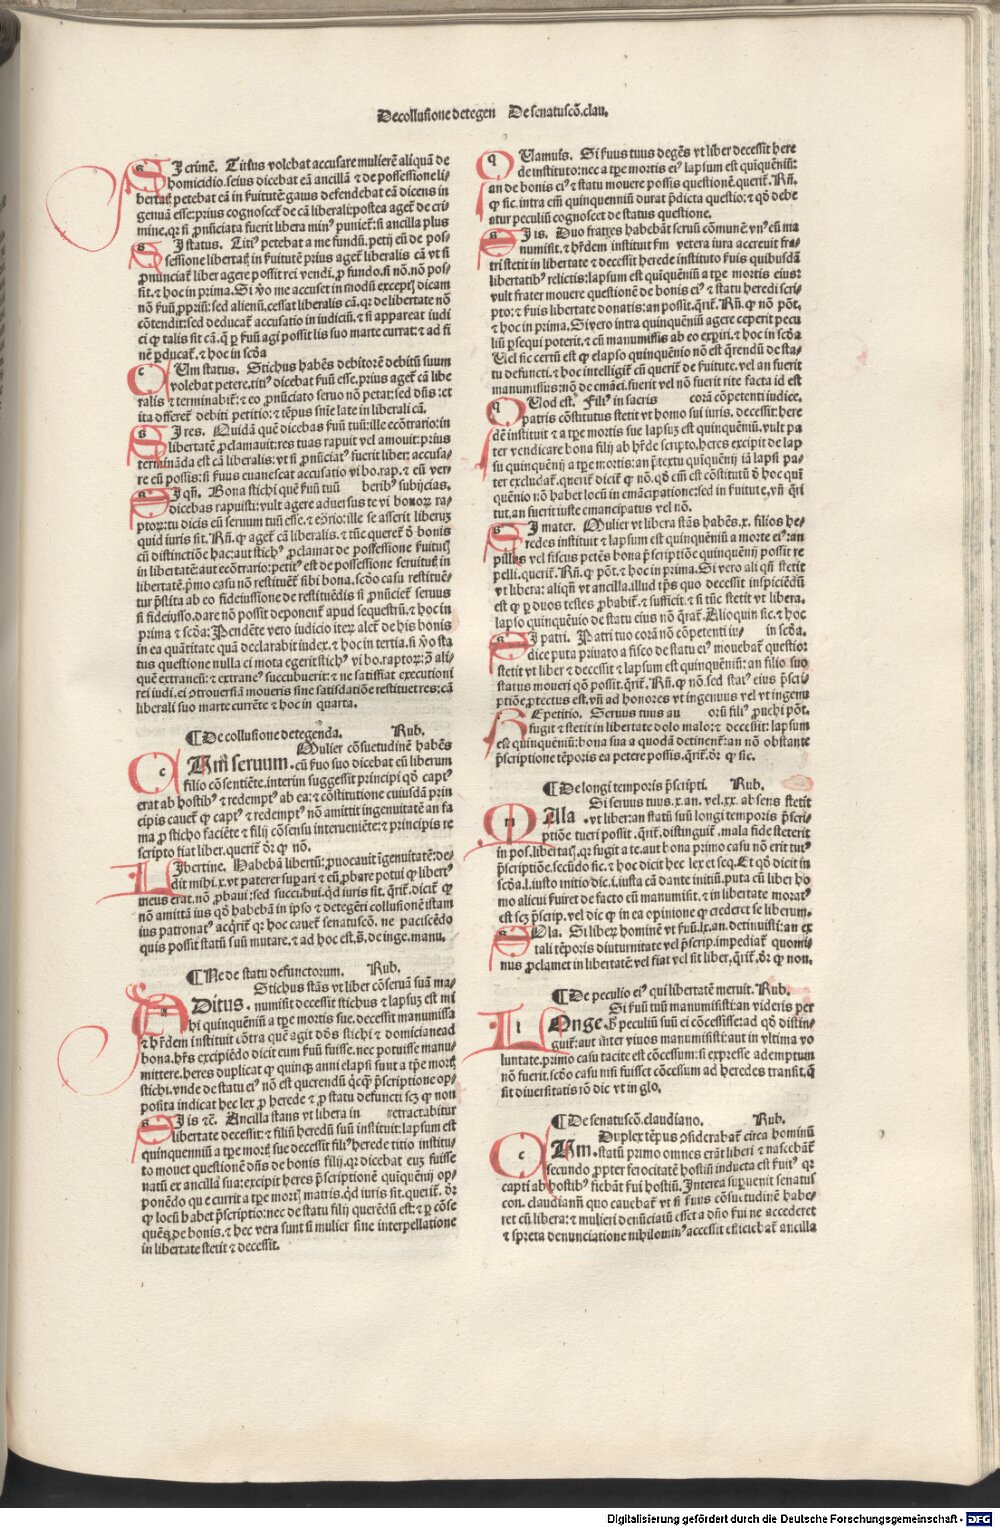 De collusione detegen    De senatuscō. clau.
SI crimē. Titius volebat accusare mulierē aliquā de
homicidio. seius dicebat eā ancillā ⁊ de possessione li-
petebat eā in gaius defendebat eā dicens in
genuā esse: prius cognoscet᷑ de cā liberali: postea aget᷑ de cri
mine. qꝛ si ꝓnūciata fuerit libera minꝰ puniet᷑: si ancilla plus
SI status. Titiꝰ petebat a me fundū. petij eū de pos-
sessione in prius aget᷑ liberalis cā vt si
ꝓnūciat᷑ liber agere possit rei vendi. ꝓ fundo. si nō. nō pos-
sit. ⁊ hoc in prima. Si me accuset in modū dicam
nō ꝓpriū: sed alienū. cessat liberalis cā. qꝛ de libertate nō
cōtendit: sed deducat᷑ accusatio in iudiciū. ⁊ si appareat iudi
ci ꝙ talis sit cā. agi possit lis suo marte currat: ⁊ ad fi
nē ꝑducat᷑. ⁊ hoc in scd̄a
CUm status. Stichus habēs debitorē debitū suum
volebat petere. titiꝰ dicebat esse. prius aget᷑ cā libe
ralis ⁊ terminabit᷑: ⁊ eo ꝓnūciato seruo nō petat: sed dn̄s: ⁊t
ita differet᷑ debiti petitio: ⁊ tēpus late in liberali cā.
SI res. Quidā quē dicebas tuū: ille ecōtrario: in
libertatē ꝓclamauit: res tuas rapuit vel amouit: prius
termināda est cā liberalis: vt si ꝓnūciatꝰ fuerit liber: accusa-
re eū possis: si euanescat accusatio vi bo. rap. ⁊ eū ver
SI qn̄. Bona stichi quē tuū    beribꝰ subijcias.
dicebas rapuisti: vult agere aduersus te vi ra-
tu dicis eū seruum tuū esse. ⁊ ille se asserit
quid iuris sit. Rn̄. ꝙ aget᷑ cā liberalis. ⁊ tūc queret᷑ bonis
cū distinctiōe hac: aut stichꝰ ꝓclamat de possessione
in libertatē: aut ecōtrario: petitꝰ est de possessione in
libertatē. casu nō restituet᷑ sibi bona. scd̄o casu restituē-
tur ab eo fideiussione de restituēdis si ꝓnūciet᷑ seruus
si fideiusso. dare nō possit deponent᷑ apud sequestrū. ⁊ hoc in
prima ⁊ scd̄a: Pendēte vero iudicio alet᷑ de his bonis
in ea quātitate quā declarabit iudex. ⁊ hoc in tertia. si sta
tus questione nulla ei mota egerit stichꝰ vi bo. ali-
quē extraneū: ⁊ extraneꝰ succubuerit: ⁊ ne satisfiat executioni
rei iudi. ei moueris sine satisdatiōe restituet res: cā
liberali suo marte currēte ⁊ hoc in quarta.
¶ De collusione detegenda.    Rub.
Mulier cōsuetudinē habēs
CUm seruum. cū suo dicebat eū liberum
filio cōsentiēte. interim suggessit principi qd̄ captꝰ
erat ab hostibꝰ ⁊ redemptꝰ ab ea: ⁊ cōstitutione cuiusdā prin
cipis cauet᷑ ꝙ captꝰ ⁊ redemptꝰ nō amittit ingenuitatē an fa
ma ꝓ sticho faciēte ⁊ filij cōsensu interueniēte: ⁊ principis re
scripto fiat liber. querit᷑ ꝙ nō.
LIbertine. Habebā libertū: ꝓuocauit ingenuitatē: de-
dit mihi. x. vt paterer supari ⁊ eū ꝓbare potui ꝙ libertꝰ
meus erat. nō ꝓbaui: sed succubui. qd iuris sit. qrit᷑. dicit᷑ ꝙ
nō amittā ius qd̄ habebā in ipso ⁊ detegēti collusionē istam
ius patronatꝰ acqrit᷑ qꝛ hoc cauet᷑ senatuscō. ne paciscēdo
quis possit statū suū mutare. ⁊ ad hoc est. s̄. de inge. manu.
¶ Ne de statu defunctorum.    Rub.
Stichus stās vt liber cōseruā suā ma-
ADitus. numisit decessit stichus ⁊ lapsuꝫ est mi
hi quinquēniū a tꝑe mortis sue. decessit manumissa
⁊ hr̄dem instituit cōtra quē agit dn̄s stichi ⁊ domiciane ad
bona. hr̄s excipiēdo dicit eum fuisse. nec potuisse manu-
mittere. heres duplicat ꝙ quinqꝫ anni elapsi sunt a tꝑe
stichi. vnde de statu eiꝰ nō est querendū qꝛcqꝫ pscriptione op-
posita indicat hec lex ꝓ herede ⁊ ꝓ statu defuncti scꝫ ꝙ non
SI is ⁊c̄. Ancilla stans vt libera in    retractabitur
libertate decessit: ⁊ filiū heredū suū instituit: lapsum est
quinquenniū a tꝑe sue decessit filiꝰ herede titio institu-
to mouet questionē dn̄s de bonis filij. qꝛ dicebat euꝫ fuisse
natū ex ancilla sua: excipit heres pscriptionē quinquēnij op-
ponēdo qꝛ currit a tꝑe matris. qd iuris sit. querit᷑.
ꝙ locū habet pscriptio: nec de statu filij querēdū est: ⁊ ꝑ cōse
quēs de bonis. ⁊ hec vera sunt si mulier sine interpellatione
in libertate stetit ⁊ decessit.
QUamuis. Si tuus degēs vt liber decessit here
de instituto: nec a tꝑe mortis eiꝰ lapsum est quinquēniū:
an de bonis eiꝰ ⁊ statu mouere possis questionē. querit᷑. Rn̄.
ꝙ sic. intra em̄ quinquenniū durat pdicta questio: ⁊ qd̄ debe
atur peculiū cognoscet de status questione.
SI is. Duo fratres habebāt seruū cōmunē vnꝰ eū ma
numisit. ⁊ hr̄dem instituit vetera iura accreuit fra-
tri stetit in libertate ⁊ decessit herede instituto quibusdā
libertatibꝰ relictis: lapsum est quinquēniū a tꝑe mortis eius:
vult frater mouere questionē de bonis eiꝰ ⁊ statu heredi scri-
pto: ⁊ libertate donatis: an possit. qrit᷑. Rn̄. ꝙ nō pōt.
⁊ hoc in prima. Si vero intra quinquēniū agere ceperit pecu
liū ꝑsequi poterit. ⁊ cū manumissis ab eo exꝑiri. ⁊ hoc in scd̄a
Uel sic certū est ꝙ elapso quinquēnio nō est querēdū de sta-
tu defuncti. ⁊ hoc intelligit᷑ cū querit᷑ de vel an fuerit
manumissus: nō de emāci. fuerit vel nō fuerit rite facta id est
QUod est. Filiꝰ in sacris    corā cōpetenti iudice.
patris cōstitutus stetit vt homo sui iuris. decessit: here
dē instituit ⁊ a tꝑe mortis sue lapsuꝫ est quinquēniū. vult pa
ter vendicare bona filij ab hr̄de scripto. heres excipit de lap
su quinquēnij a tꝑe mortis: an ptextu quinquēnij iā lapsi pa-
ter excludat᷑. querit᷑ dicit᷑ ꝙ nō. qd̄ em̄ est cōstitutū hoc qui
quēnio nō habet locū in emācipatione: sed in
tur. an fuerit iuste emancipatus vel nō.
SI mater. Mulier vt libera stās habēs. x. filios he-
redes instituit ⁊ lapsum est quinquēniū a morte eiꝰ: an
pillus vel fiscus petēs bona pscriptiōe quinquēnij possit re
pelli. querit᷑. Rn̄. ꝙ pōt. ⁊ hoc in prima. Si vero ali qn̄ stetit
vt libera: aliqn̄ vt ancilla. illud tps quo decessit inspiciēdū
est ꝙ ꝑ duos testes ꝓbabit᷑. ⁊ sufficit. ⁊ si tūc stetit vt libera.
lapso quinquēnio de statu eius nō qrat᷑. Alioquin sic. ⁊ hoc
SI patri. Patri tuo corā nō cōpetenti iu-    in scd̄a.
dice puta priuato a fisco de statu eiꝰ mouebat᷑ questio:
stetit vt liber ⁊ decessit ⁊ lapsum est quinquēniū: an filio suo
status moueri qō possit. qrit᷑. Rn̄. ꝙ nō. sed statꝰ eius pscri-
ptiōe ꝓtectus est. vn̄ ad honores vt ingenuus vel vt ingenu
REpetitio. Seruus tuus au    orū filiꝰ ꝓuehi pōt.
fugit ⁊ stetit in libertate dolo malo: ⁊ decessit: lapsum
est quinquēniū: bona sua a quodā detinent᷑: an nō obstante
pscriptione tēporis ea petere possis. qrit᷑. ꝙ sic.
¶ De longi temporis pscripti.    Rub.
Si seruus tuus. x. an. vel. xx. absens stetit
MALa. vt liber: an statū suū longi temporis pscri-
ptiōe tueri possit. qrit᷑. distinguit᷑. mala fide steterit
in pos. qꝛ fugit a te. aut bona primo casu nō erit tutꝰ
pscriptiōe. secūdo sic. ⁊ hoc dicit hec lex et seq. Et qd̄ dicit in
scd̄a. l. iusto initio dic. i. iusta cā dante initiū. puta cū liber ho
mo alicui fuiret de facto eū manumisit. ⁊ in libertate moratꝰ
est scꝫ pscrip. vel dic ꝙ in ea opinione ꝙ crederet se liberum.
SOla. Si liberꝫ hominē vt lx. an. detinuisti: an ex
tali tēporis diuturnitate vel pscrip. impediat᷑ quomi-
nus ꝓclamet in libertatē vel fiat vel sit liber. qrit᷑. ꝙ non.
¶ De peculio eiꝰ qui libertatē meruit. Rub.
Si tuū manumisisti: an videris ꝑer
LOnge. peculiū suū ei cōcessisse: ad qd̄ distin-
guit᷑: aut inter viuos manumisisti: aut in vltima vo
luntate. primo casu tacite est cōcessum: si expresse ademptum
nō fuerit. scd̄o casu nisi fuisset cōcessum ad heredes transit. q̄
sit diuersitatis rō dic vt in glo.
¶ De senatuscō. claudiano.    Rub.
Duplex tēpus ꝯsiderabat᷑ circa hominū
CUm. statū primo omnes erāt liberi ⁊ nascebāt᷑
secundo. ꝓpter ferocitatē hostiū inducta est qꝛ
capti ab hostibꝰ fiebāt hostiū. Interea supuenit senatus
con. claudianū quo cauebat᷑ vt si cōsuetudinē habe-
ret cū libera: ⁊ mulieri denūciatū esset a dn̄o ne accederet
⁊ spreta denunciatione nihilominꝰ accessit efficiebat᷑ ancilla
Digitalisierung gefördert durch die Deutsche Forschungsgemeinschaft - DFG